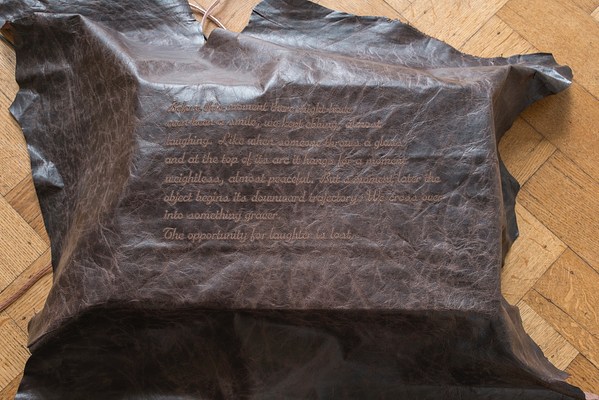 a smile, we keep
laughing. Like when someone throws a glass
and at the top of its arc it hangs for a moment
weightless, almost peaceful. But a moment later the
object begins its downward trajectory. We cross over
into something graver.
The opportunity for laughter is lost.